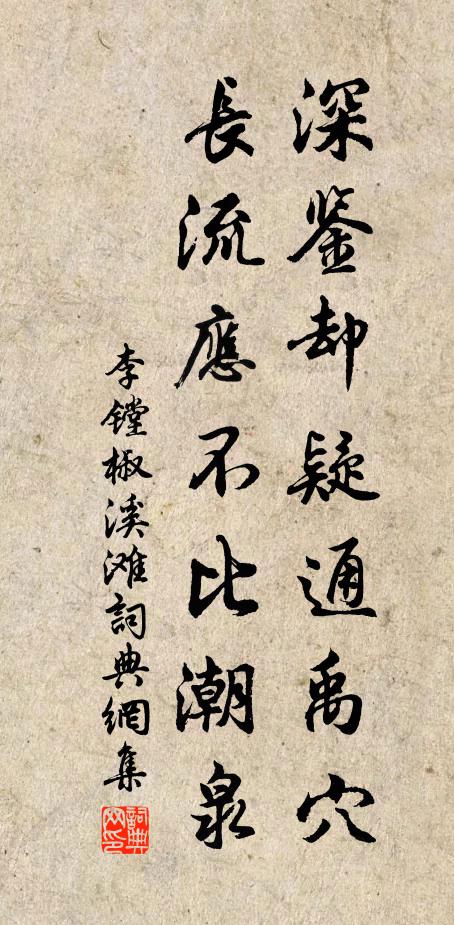 深鉴却疑通禹穴
長流應不比潮泉
李镗椒溪滩詞典網集
詞典网印